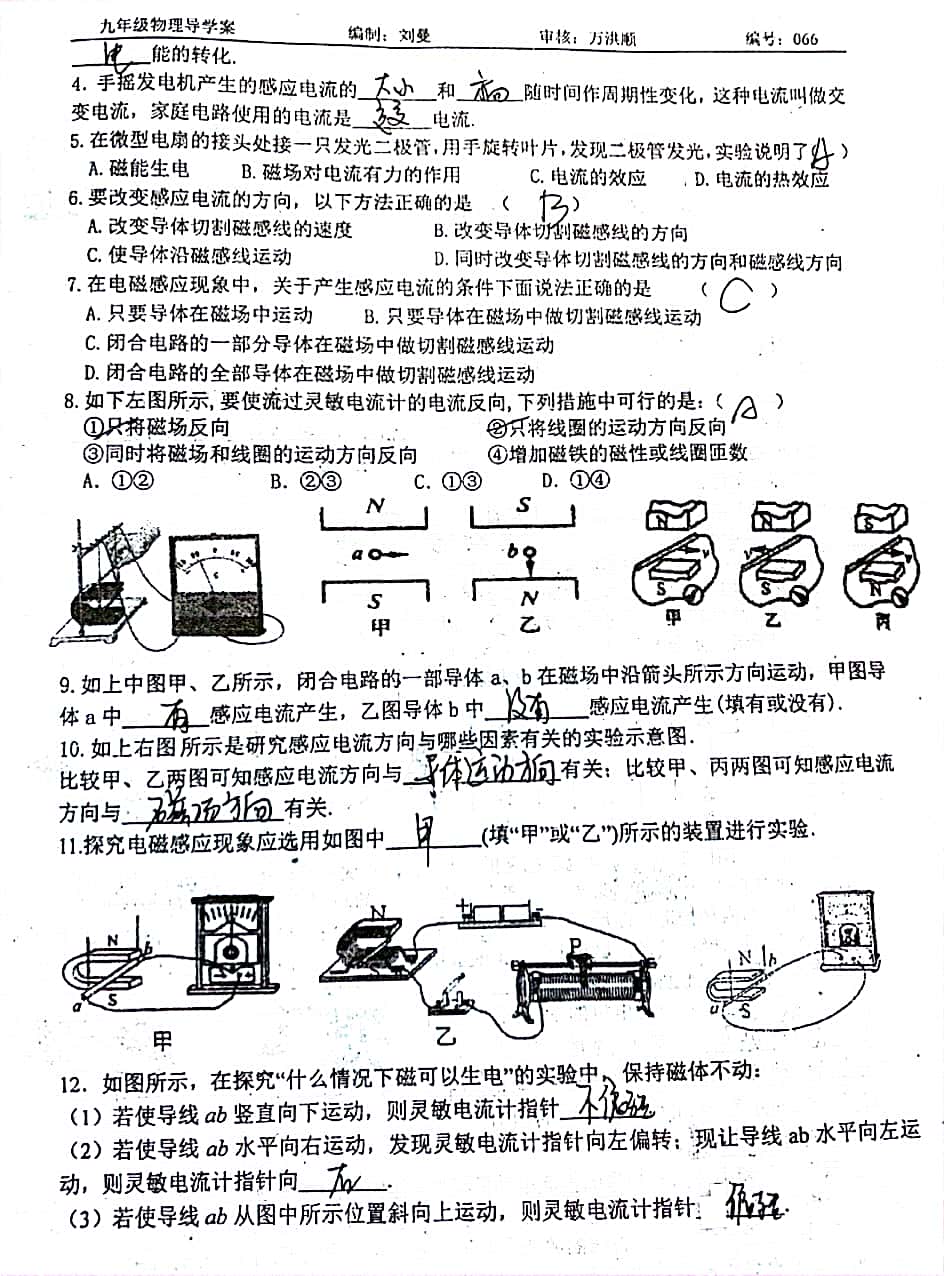 九年级物理导学案 编制：刘曼 审核：万洪顺 编号：066
电 能的转化.
4. 手摇发电机产生的感应电流的 大小 和 方向 随时间作周期性变化，这种电流叫做交
变电流，家庭电路使用的电流是 交变 电流.
5. 在微型电扇的接头处接一只发光二极管,用手旋转叶片,发现二极管发光,实验说明了( A )
A. 磁能生电 B. 磁场对电流有力的作用 C. 电流的效应 D. 电流的热效应
6. 要改变感应电流的方向，以下方法正确的是 ( B )
A. 改变导体切割磁感线的速度 B. 改变导体切割磁感线的方向
C. 使导体沿磁感线运动 D. 同时改变导体切割磁感线的方向和磁感线方向
7. 在电磁感应现象中，关于产生感应电流的条件下面说法正确的是 ( C )
A. 只要导体在磁场中运动 B. 只要导体在磁场中做切割磁感线运动
C. 闭合电路的一部分导体在磁场中做切割磁感线运动
D. 闭合电路的全部导体在磁场中做切割磁感线运动
8. 如下左图所示,要使流过灵敏电流计的电流反向,下列措施中可行的是:( A )
①只将磁场反向 ②只将线圈的运动方向反向
③同时将磁场和线圈的运动方向反向 ④增加磁铁的磁性或线圈匝数
A. ①② B. ②③ C. ①③ D. ①④
N S N N S
a b v v v
S N S S N
甲 乙 甲 乙 丙
9. 如上中图甲、乙所示，闭合电路的一部导体 a、b 在磁场中沿箭头所示方向运动，甲图导
体 a 中 有 感应电流产生，乙图导体 b 中 没有 感应电流产生(填有或没有).
10. 如上右图所示是研究感应电流方向与哪些因素有关的实验示意图.
比较甲、乙两图可知感应电流方向与 导体运动方向 有关；比较甲、丙两图可知感应电流
方向与 磁场方向 有关.
11.探究电磁感应现象应选用如图中 甲 (填“甲”或“乙”)所示的装置进行实验.
N b a S N + - P N b a S
甲 乙
12. 如图所示，在探究“什么情况下磁可以生电”的实验中，保持磁体不动：
（1）若使导线 ab 竖直向下运动，则灵敏电流计指针 不偏转
（2）若使导线 ab 水平向右运动，发现灵敏电流计指针向左偏转；现让导线 ab 水平向左运
动，则灵敏电流计指针向 右 .
（3）若使导线 ab 从图中所示位置斜向上运动，则灵敏电流计指针 偏转.